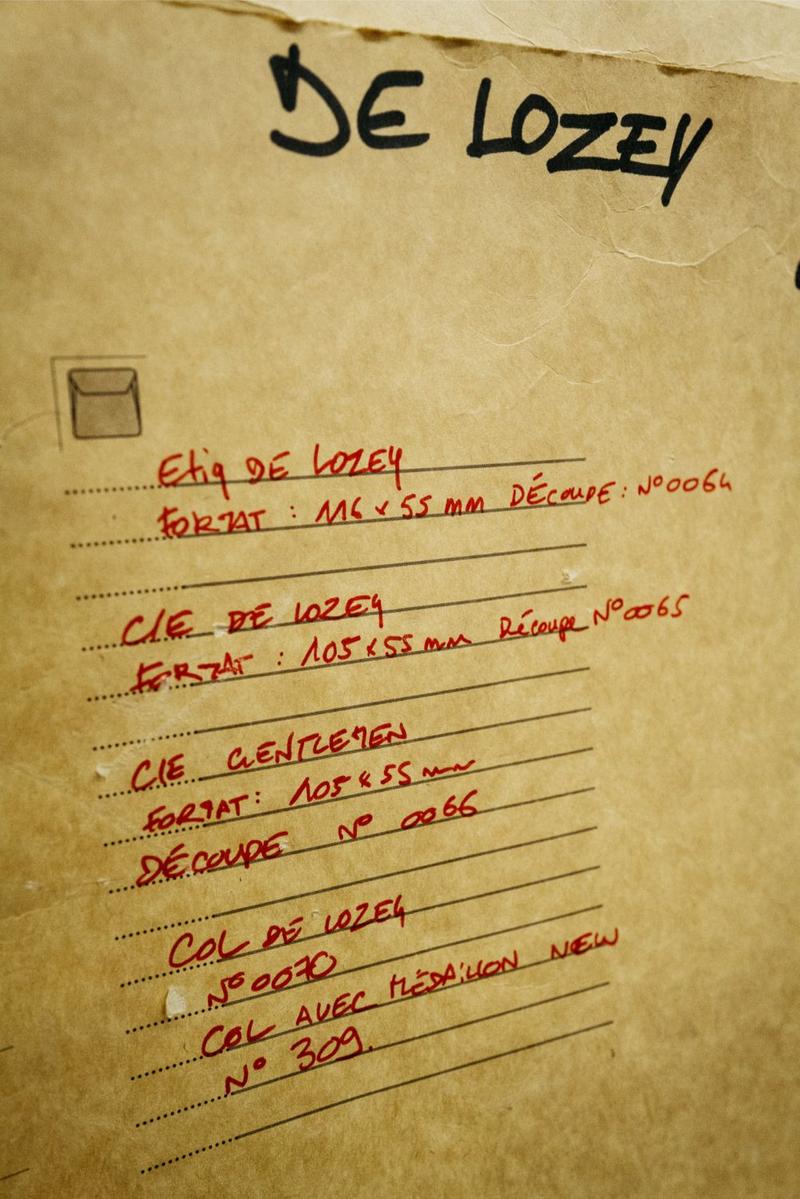 DE LOZEY
Etiq DE LOZEY
FORMAT : 116 x 55 mm DÉCOUPE : N° 0064
C/E DE LOZEY
FORMAT : 105 x 55 mm Découpe N° 0065
C/E GENTLEMEN
FORMAT : 105 x 55 mm
DÉCOUPE N° 0066
COL DE LOZEY
N° 0070
COL AVEC MÉDAILLON NEW
N° 309.